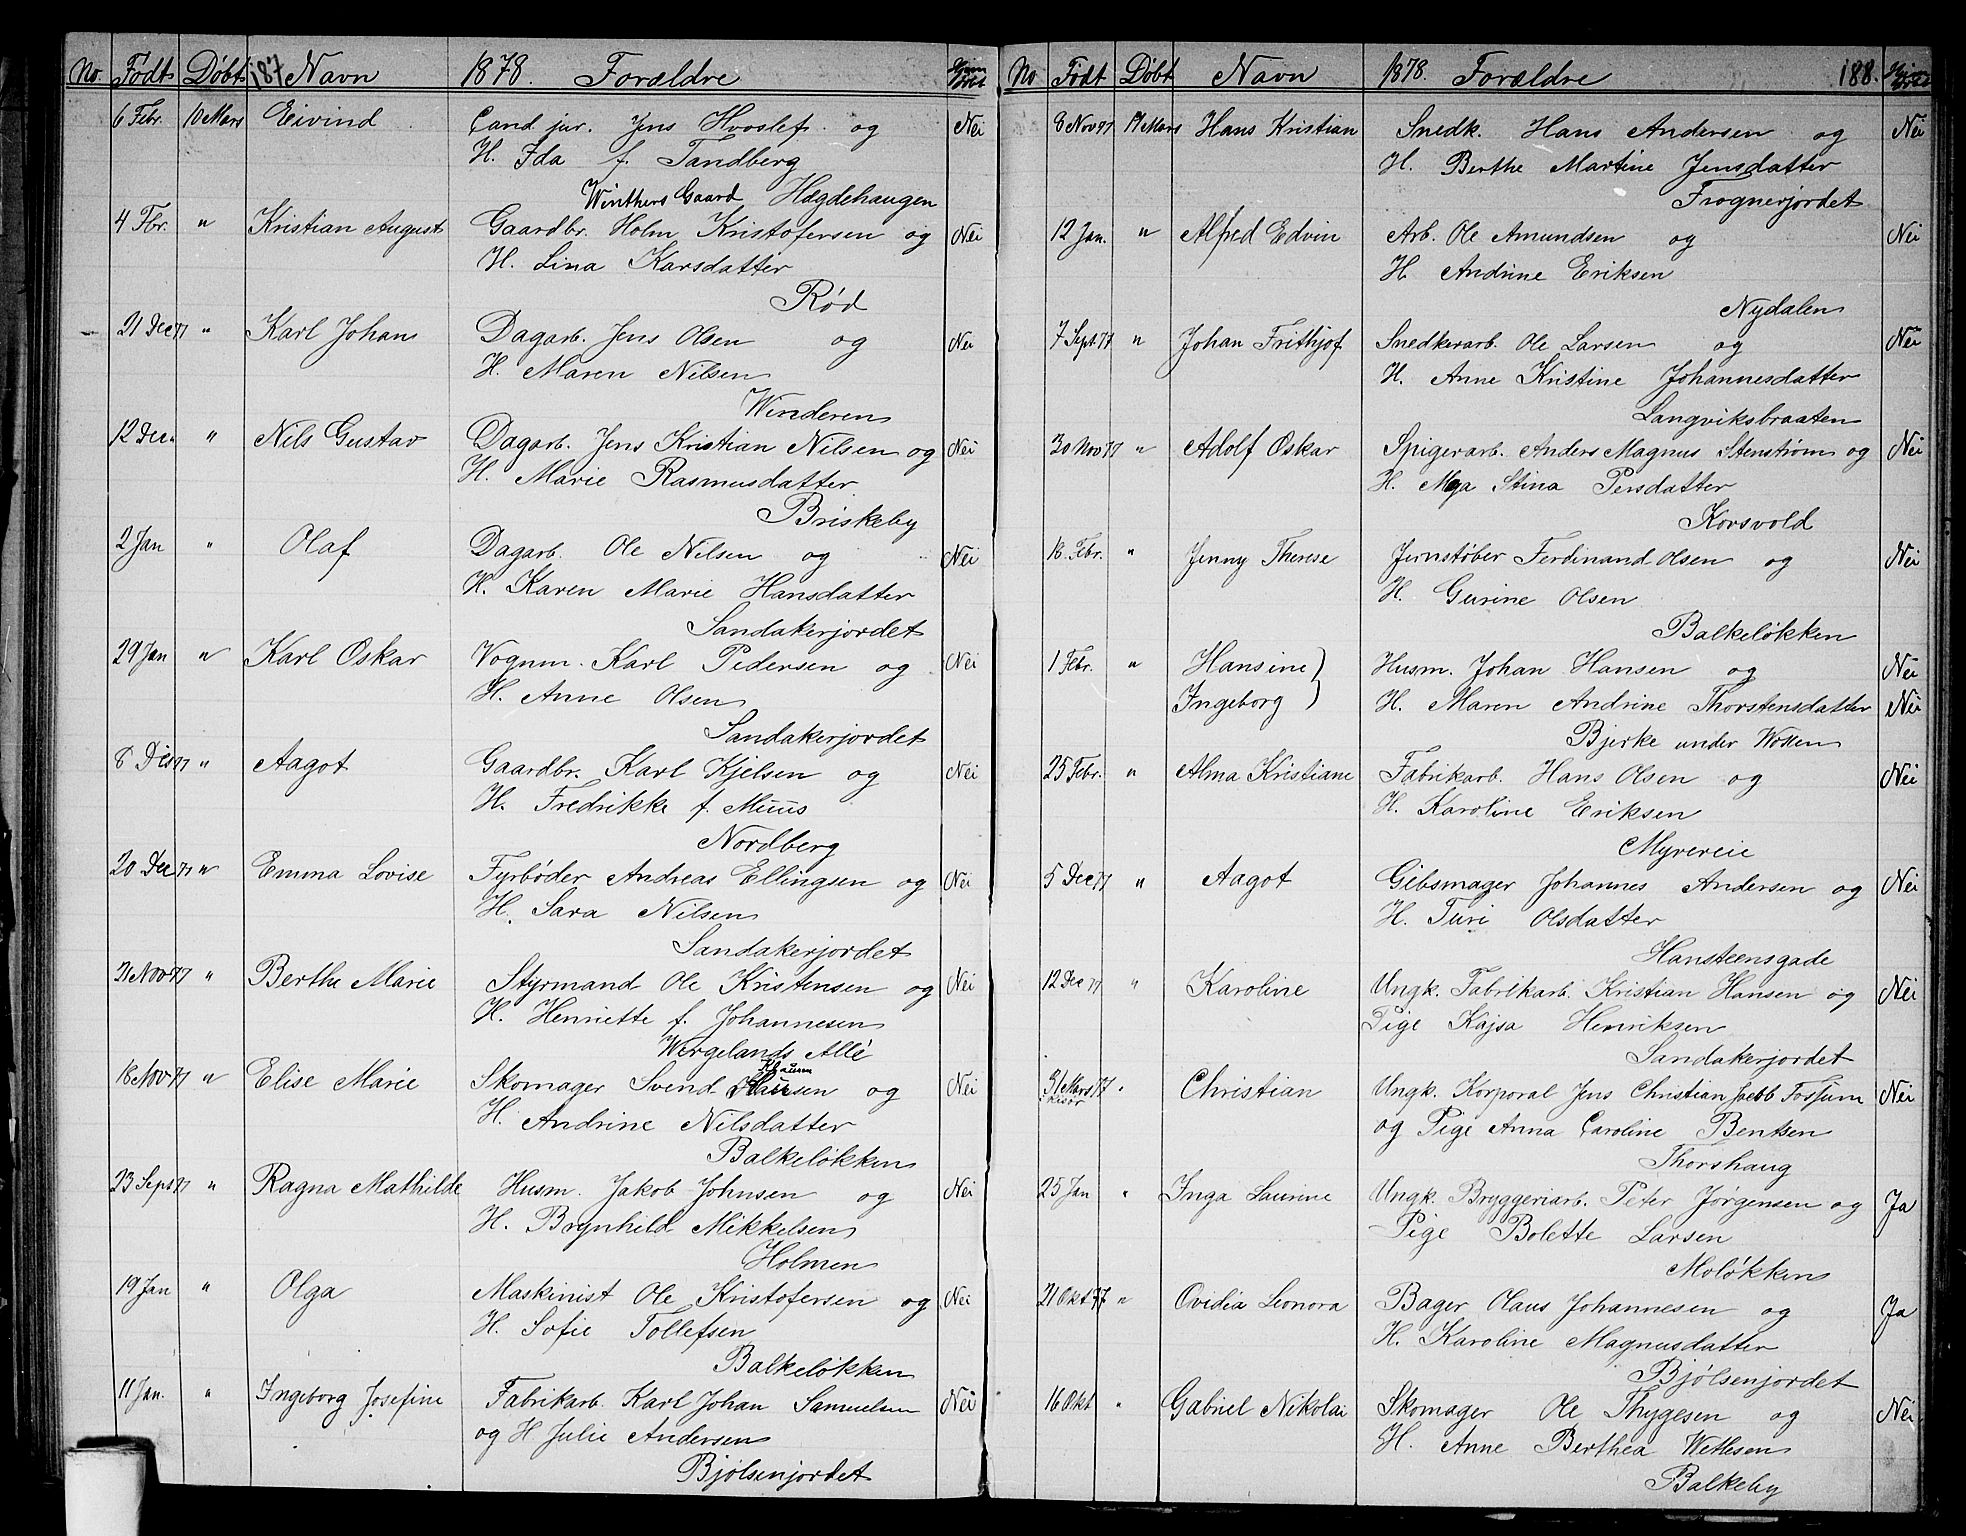 No. Født Døbt 187 Navn 1878. Forældre
6 Febr. 10 Mars Eivind Cand. jur. Jens Hvoslef og Nei
H. Ida f. Tandberg
Winthers Gaard Hægdehaugen
4 Fbr. " Kristian August Gaardbr. Holm Kristofersen og Nei
H. Lina Larsdatter
Rød
21 Dec 77 " Karl Johan Dagarb. Jens Olsen og Nei
H. Maren Nilsen
Winderen
12 Dec " " Nils Gustav Dagarb. Jens Kristian Nilsen og Nei
H. Marie Rasmusdatter
Briskeby
2 Jan " Olaf Dagarb. Ole Nilsen og Nei
H. Karen Marie Hansdatter
Sandakerjordet
29 Jan " Karl Oskar Vognm. Karl Pedersen og Nei
H. Anne Olsen
Sandakerjordet
8 Des 77 " Aagot Gaardbr. Karl Kjelsen og Nei
H. Fredrikke f. Muus
Nordberg
20 Dec 77 " Emma Lovise Fyrbøder Andreas Ellingsen og Nei
H. Sara Nilsen
Sandakerjordet
21 Nov 77 " Berthe Marie Styrmand Ole Kristensen og Nei
H. Henriette f. Johannesen
Wergelands Allé
18 Nov 77 " Elise Marie Skomager Svend og Nei
H. Andrine Nilsdatter
Balkeløkken
23 Sept 77 " Ragna Mathilde Husm. Jakob Johnsen og Nei
H. Brynhild Mikkelsen
Holmen
19 Jan " Olga Maskinist Ole Kristofersen og Nei
H. Sofie Tollefsen
Balkeløkken
11 Jan. " Ingeborg Josefine Fabrikarb. Karl Johan Samuelsen Nei
og H. Julie Andersen
Bjølsenjordet
No Født Døbt Navn 1878. Forældre 188.
8 Nov 77 17 Mars Hans Kristian Snedk. Hans Andersen og Nei
H. Berthe Martine Jensdatter
Frognerjordet
12 Jan. " Alfred Edvin Arb. Ole Amundsen og Nei
H. Andrine Eriksen
Nydalen
7 Sept 77 " Johan Frithjof Snedkerarb. Ole Larsen og Nei
H. Anne Kristine Johannesdatter
Langviksbraaten
30 Nov 77 " Adolf Oskar Spigerarb. Anders Magnus Stenstrøm og Nei
H. Maja Stina Persdatter
Korsvold
18 Febr. " Jenny Therese Jernstøber Ferdinand Olsen og Nei
H. Gurine Olsen
Balkeløkken
1 Febr. " Hansine) Husm. Johan Hansen og Nei
Ingeborg ) H. Maren Andrine Thorstensdatter Nei
Bjerke under Wollen
25 Febr. " Alma Kristiane Fabrikarb. Hans Olsen og Nei
H. Karoline Eriksen
Myrereie
5 Dec 77 " Aagot Gibsmager Johannes Andersen og Nei
H. Turi Olsdatter
Hansteensgade
12 Dec 77 " Karoline Ungk. Fabrikarb. Kristian Hansen og Nei
Pige Kajsa Henriksen
Sandakerjordet
31 Mars 77 " Christian Ungk. Korporal Jens Christian Jebb Fossum Nei
og Pige Anna Caroline Bentsen
Thorshaug
25 Jan " Inga Laurine Ungk. Bryggeriarb. Peter Jørgensen og Ja
Pige Bolette Larsen
Moløkken
21 Okt 77 " Ovidia Leonora Bager Olaus Johannesen og Ja
H. Karoline Magnusdatter
Bjølsenjordet
16 Okt " Gabriel Nikolai Skomager Ole Thygesen og Nei
H. Anne Berthea Wetlesen
Balkeby